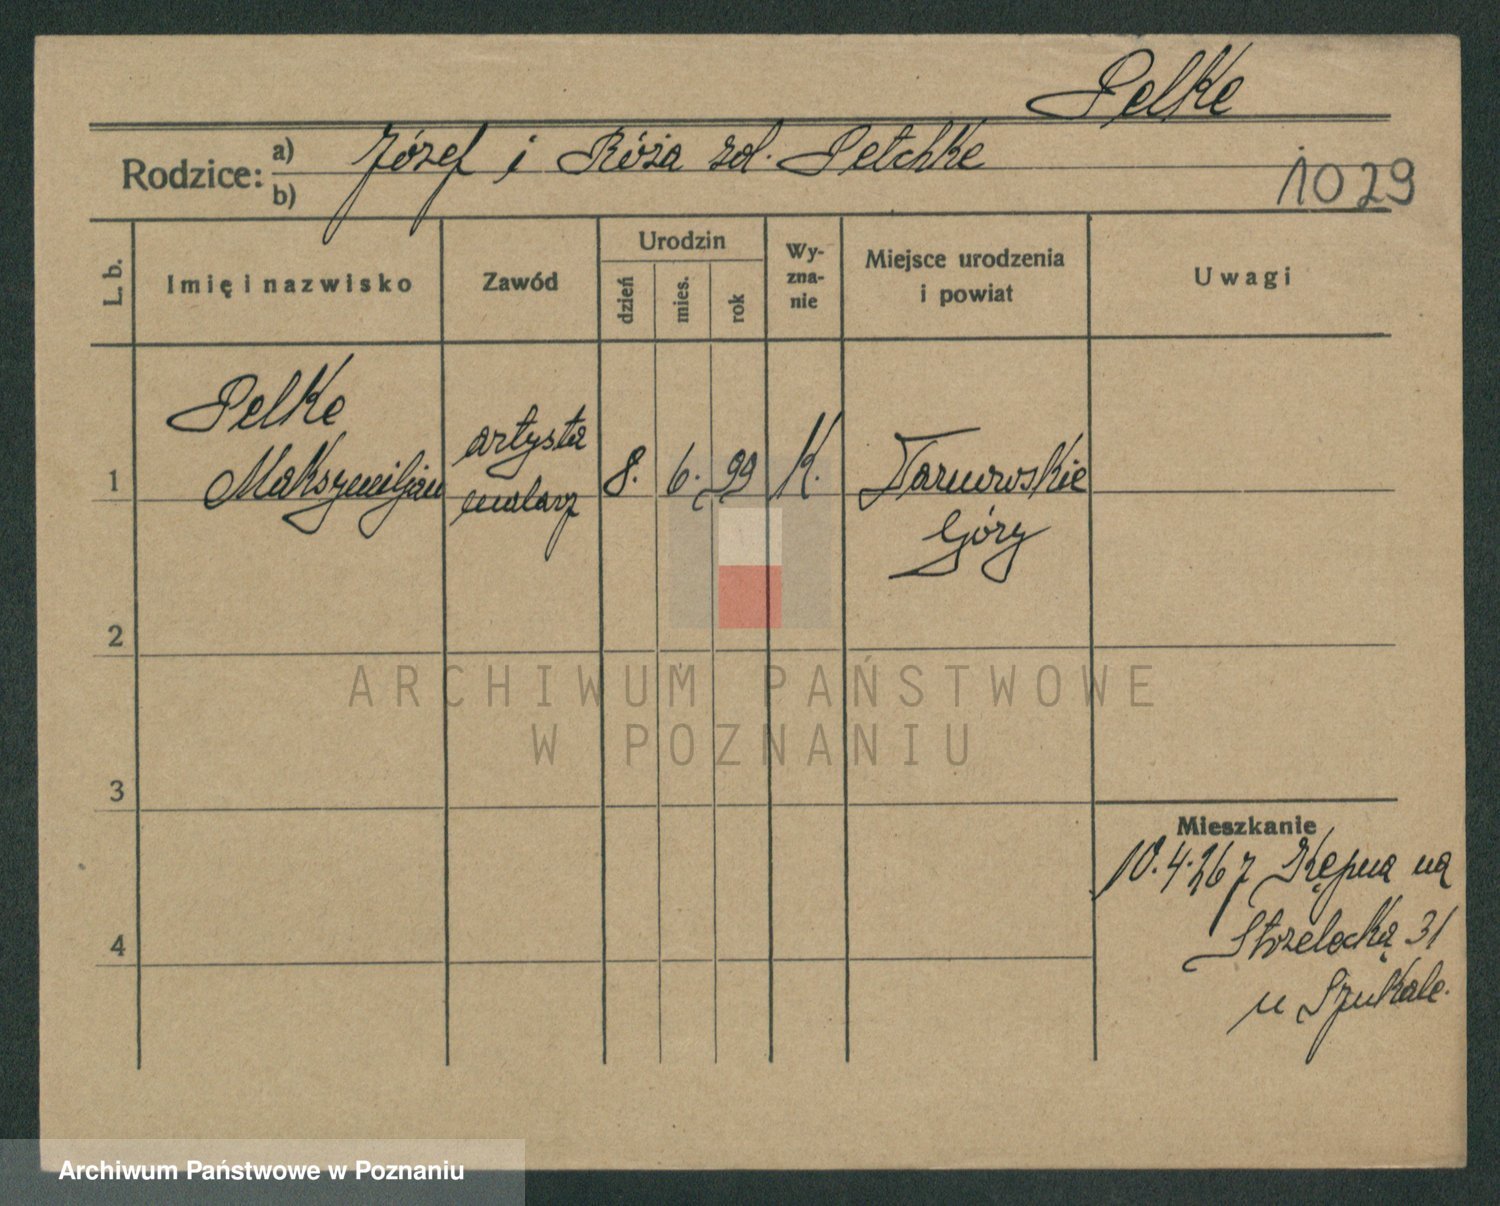 Pelke
Rodzice: a) b)
Józef i Róża zd. Petchke
1029
L. b.
Imię i nazwisko
Zawód
Urodzin
dzień
mies.
rok
Wy-
zna-
nie
Miejsce urodzenia
i powiat
Uwagi
1
Pelke
Maksymiljan
artysta
malarz
8.
6.
99
K.
Tarnowskie
Góry
2
3
4
Mieszkanie
10.4.26 z Kępna na
Strzelecką 31
u Szukale.
ARCHIWUM PAŃSTWOWE
W POZNANIU
Archiwum Państwowe w Poznaniu